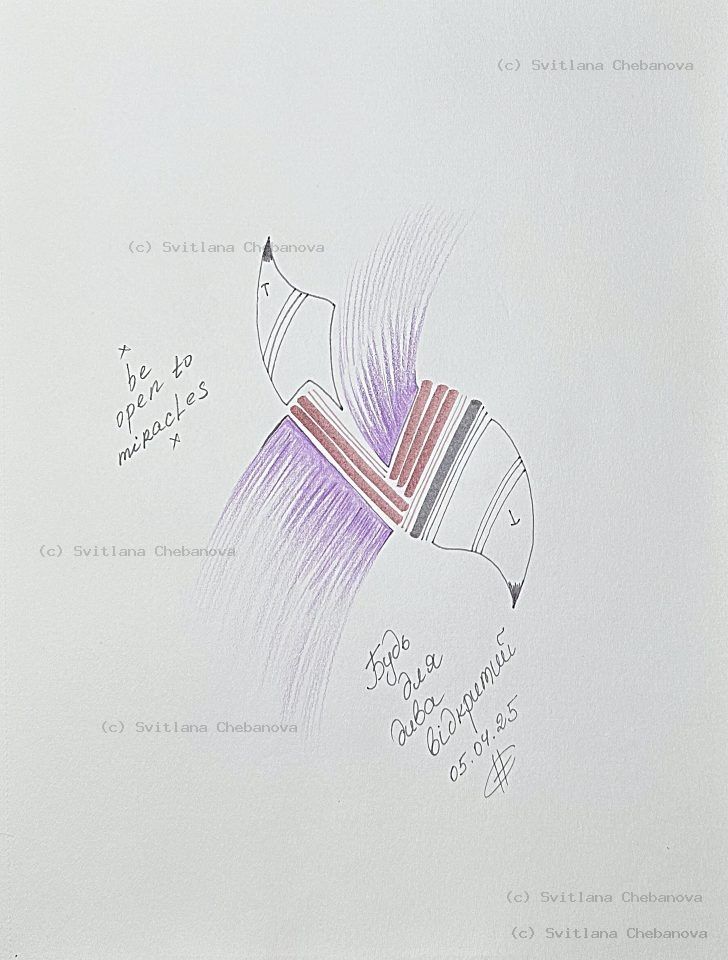 (c) Svitlana Chebanova
(c) Svitlana Chebanova
T
x
be
open to
miracles
x
T
(c) Svitlana Chebanova
Будь
для
дива
відкритий
05.04.25
(c) Svitlana Chebanova
(c) Svitlana Chebanova
(c) Svitlana Chebanova